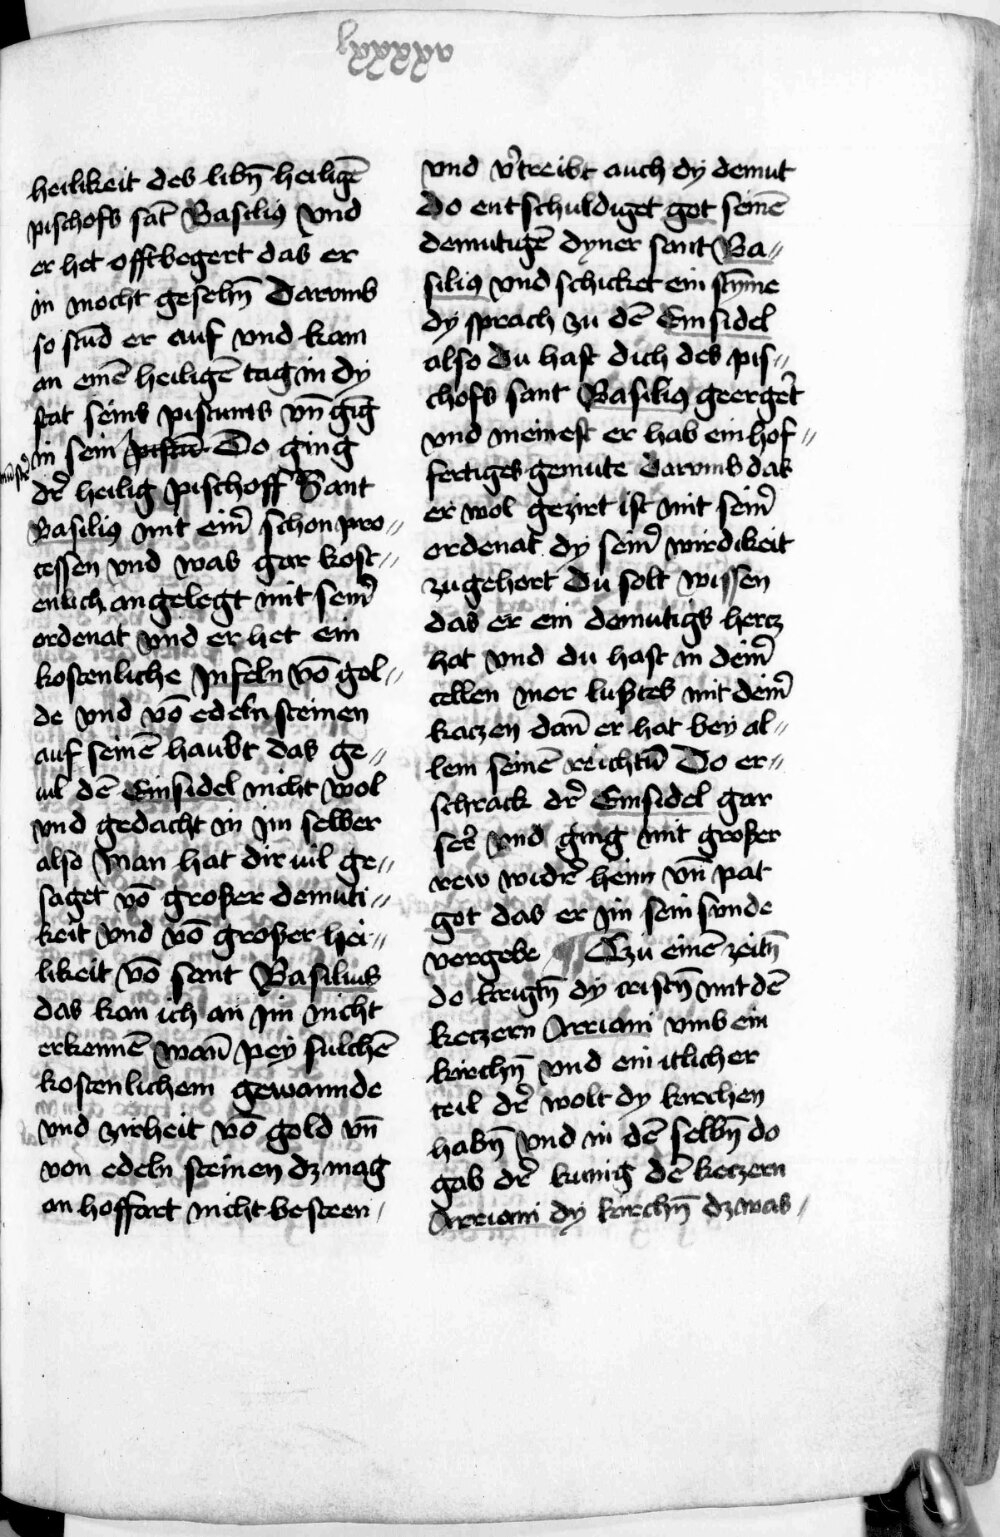 heilikeit des libn̄ heiligē
pischofs sāt Basiliꝰ vnd
er het offt begert das er
in mocht gesehn̄ Darvmb
so stūd er auf vnd kam
an einē heiligē tag in dy
stat seins pistumbs vn̄ gīg
in sein pistū Do ging
dr̄ heilig pischoff Sant
Basiliꝰ mit eim̄ schon pro⸗
cessen vnd was gar kost⸗
enlich angelegt mit seim̄
ordenat vnd er het ein
kostenliche Jnfeln vō gol⸗
de vnd vō edeln steinen
auf seinē haubt das ge⸗
uil dē Einsidel nicht wol
vnd gedacht in jm selber
also Man hat dir uil ge⸗
saget vō großer demuti⸗
keit vnd vō großer hei⸗
likeit vō sant Basilius
das kan ich an jm nicht
erkennē wan̄ pey sulchē
kostenlichem gewannde
vnd zirheit vō gold vn̄
von edeln steinen dz mag
an hoffart nicht besteen
vnd v̄treibt auch dy demut
Do entschuldiget got seinē
demutigē dyner sant Ba⸗
siliꝰ vnd schicket ein stȳme
dy sprach zu dē Einsidel
also Du hast dich des pis⸗
chofs sant Basiliꝰ geerget
vnd meinest er hab ein hof⸗
fertiges gemute Darvmb das
er wol gezirt ist mit seim̄
ordenat dy seim̄ wirdikeit
zugehort Du solt wissen
das er ein demutigs hercz
hat vnd du hast in deim̄
cellen mer lustes mit deim̄
kaczen dan̄ er hat bey al⸗
lem seinē reichtū Do er⸗
schrack dr̄ Einsidel gar
ser̄ vnd ging mit großer
rew widr̄ heim vn̄ pat
got das er jm sein sunde
vergebe ¶ Czu einē zeitn̄
do krigtn̄ dy cristn̄ mit dē
keczern Arriani vmb ein
kirchn̄ vnd ein itlicher
teil dr̄ wolt dy kirchen
habn̄ vnd in dē selbn̄ do
gab dr̄ kunig dē keczern
Arriani dy kirchn̄ dz was